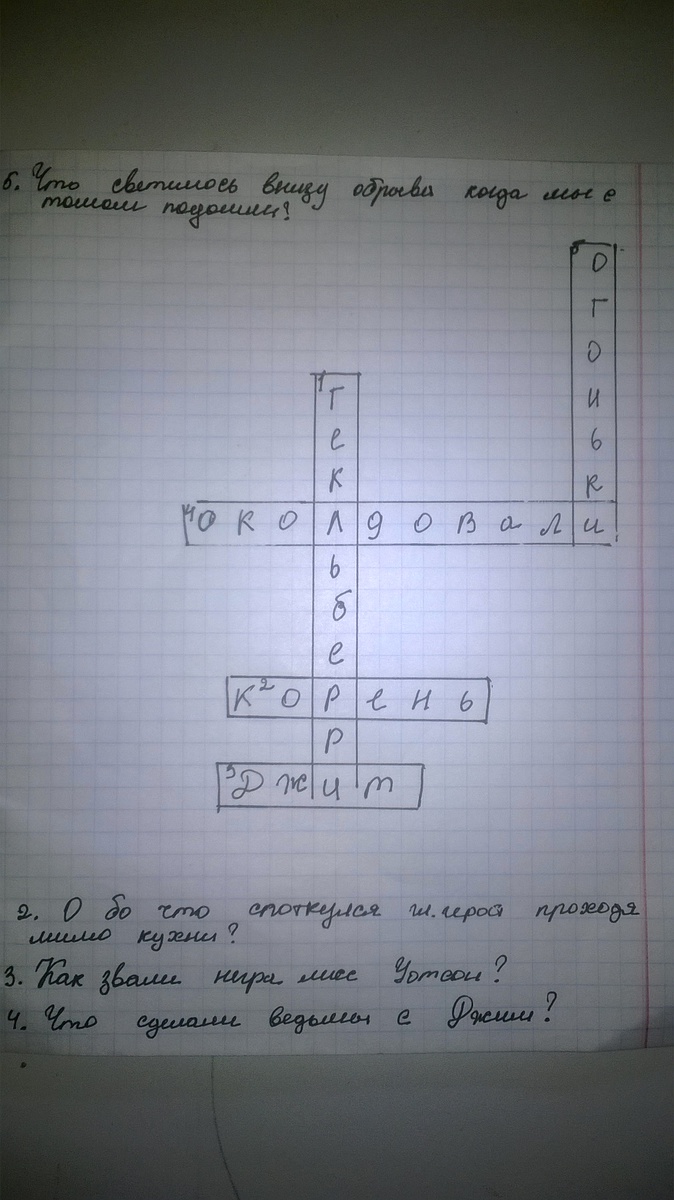 5. Что светилось внизу обрыва когда мы с
томом подошли?
5 О
Г
О
Н
Ь
К
1 Г
е
к
4 О К О Л Д О В а Л и
ь
б
е
К 2 О Р е Н Ь
Р
3 Д ж и м
2. О бо что споткулся гл. герой проходя
мимо кухни?
3. Как звали негра мисс Уотсон?
4. Что сделали ведьмы с Джим?